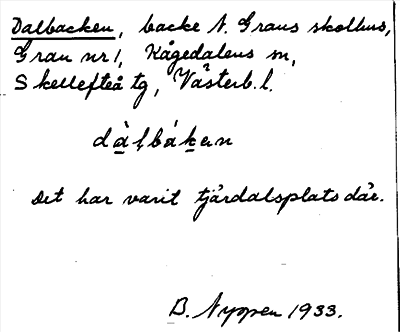 Dalbacken, backe N. Grans skolhus,
Gran nr 1, Kågedalens sn,
Skellefteå tg, Västerb. l.
dàlbáken
Det har varit tjärdalsplats där.
B. Nygren 1933.